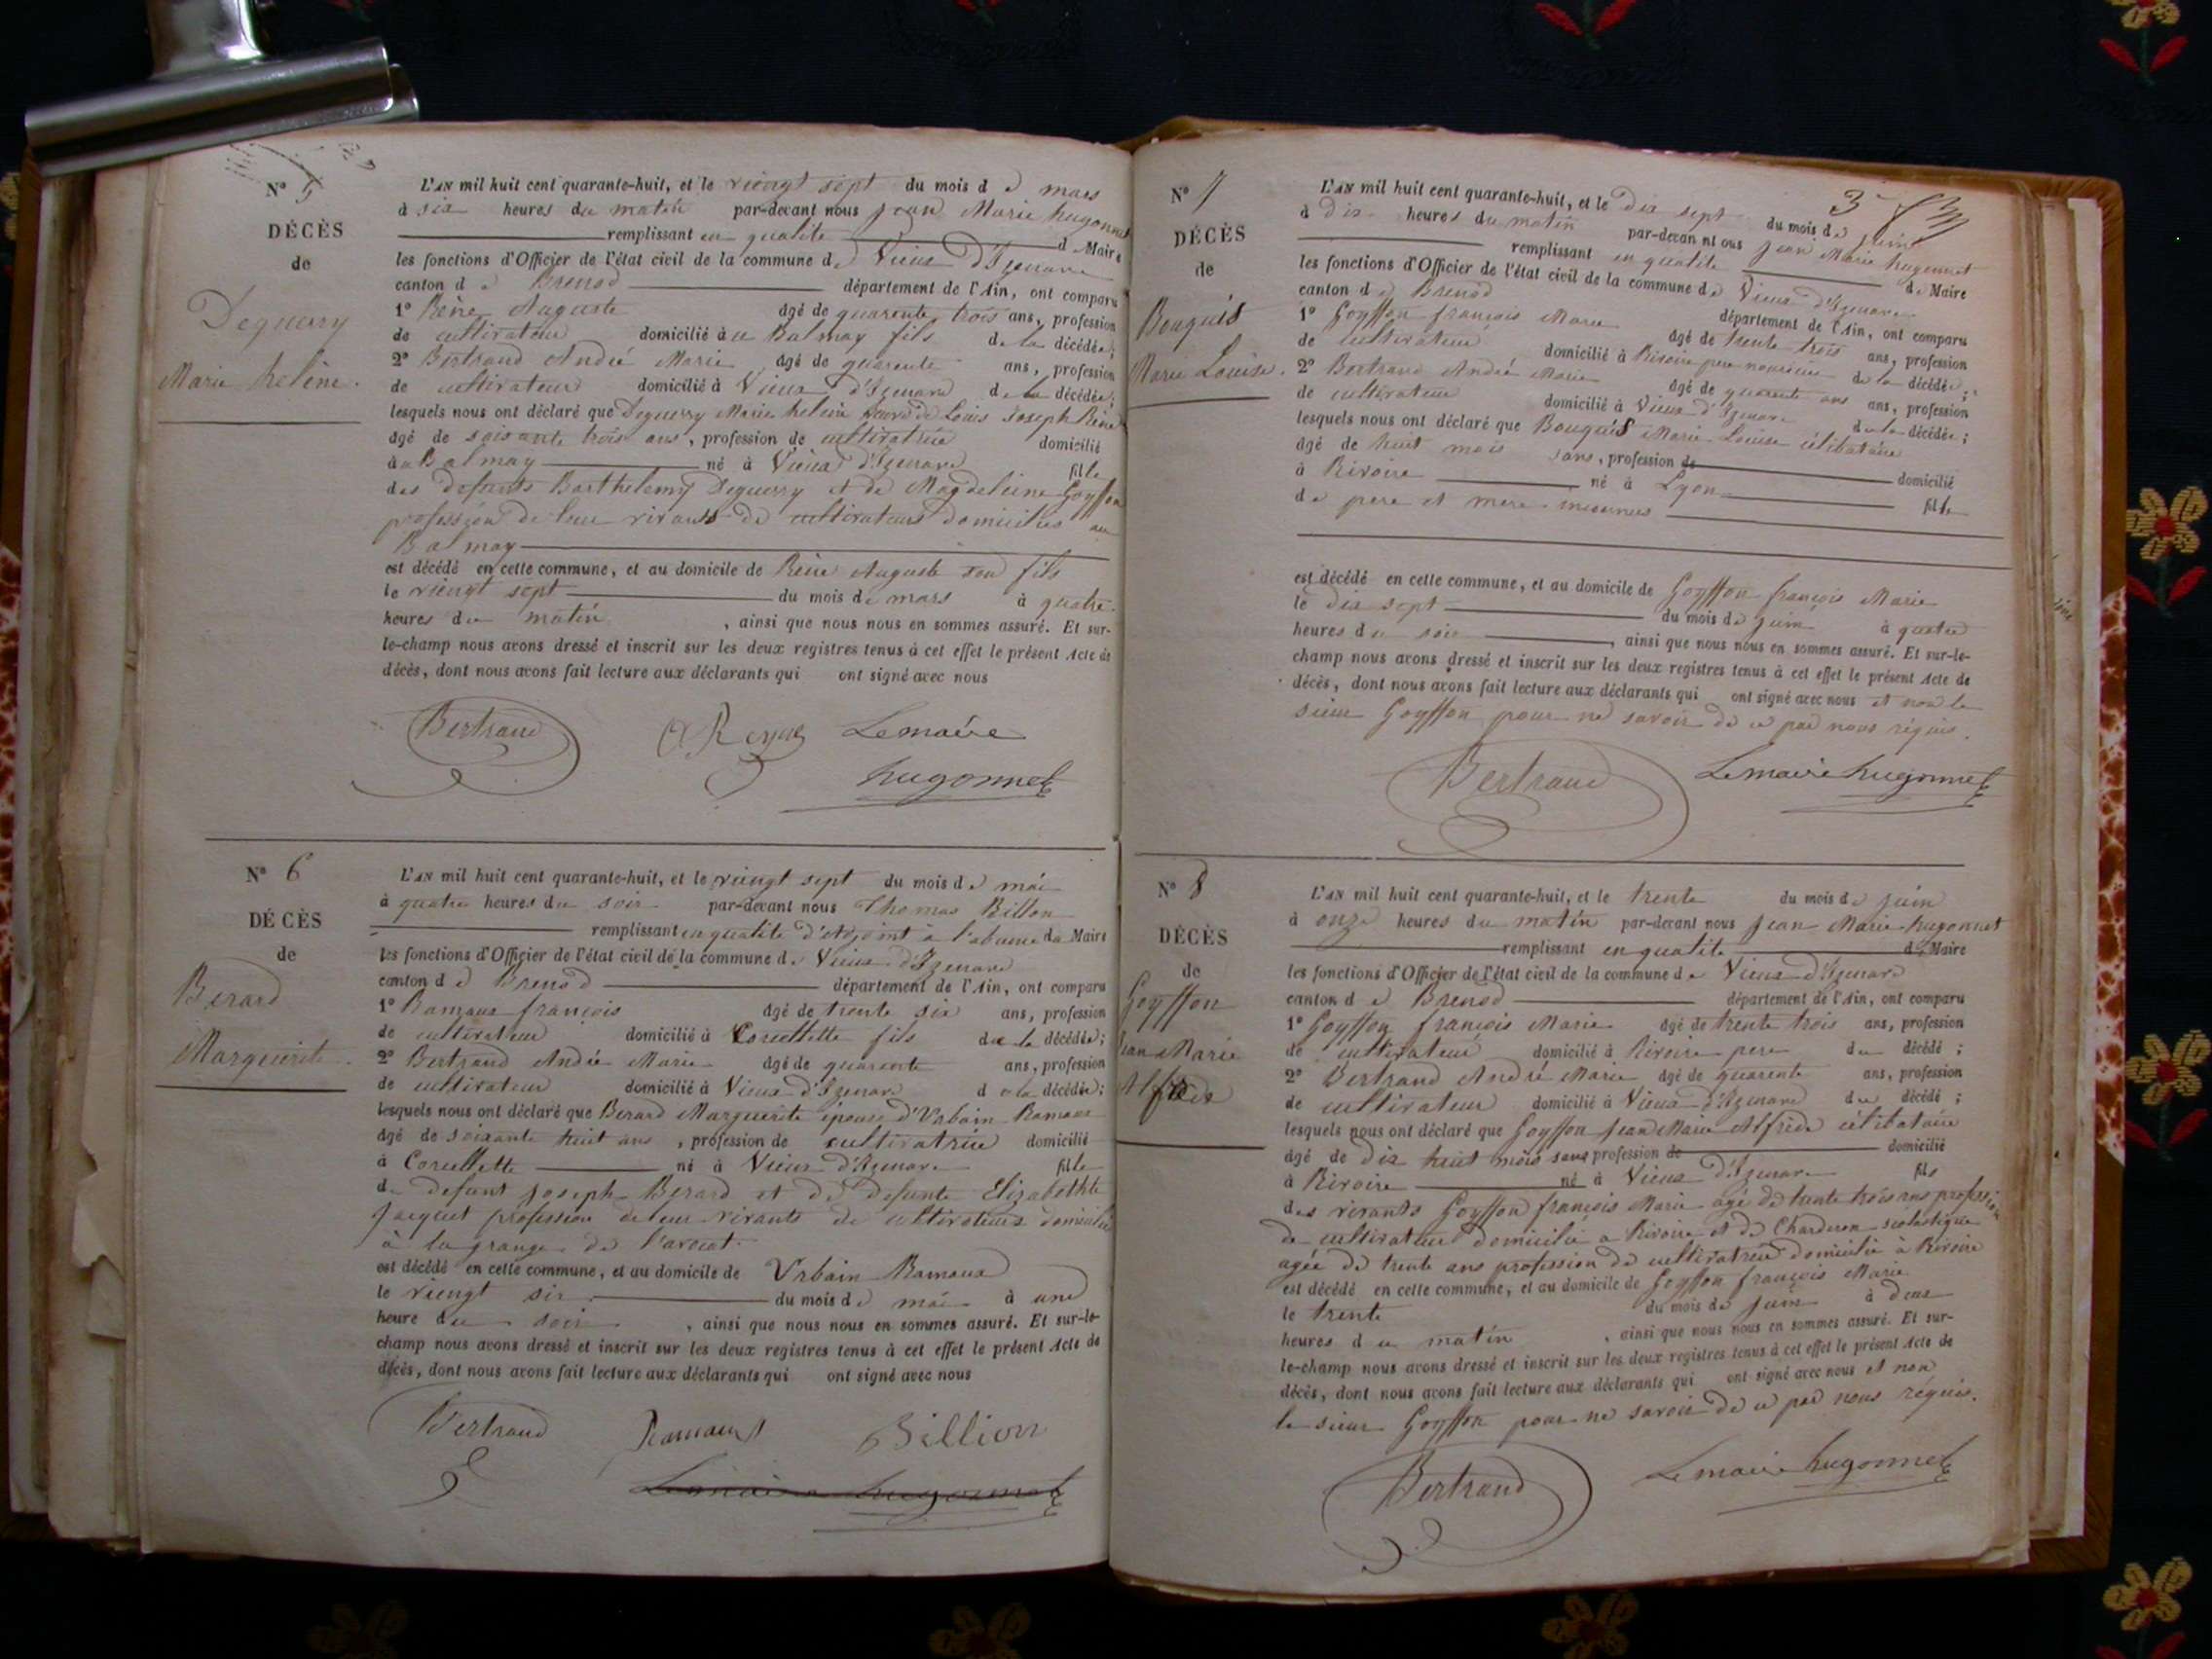 N° 5
DÉCÈS
de
Deguerry
Marie helène.
L'AN mil huit cent quarante-huit, et le viengt sept du mois d e mars
à six heures du matin par-devant nous jean Marie hugonnet
remplissant en qualité d Maire
les fonctions d'Officier de l'état civil de la commune de Vieux D'Izenave
canton de Brenod département de l'Ain, ont comparu
1° Rène Auguste âgé de quarente trois ans, profession
de cultivateur domicilié au Balmay fils de la décédée;
2° Bertrand André Marie âgé de quarente ans, profession
de cultivateur domicilié à Vieux d'Izenave de la décédée;
lesquels nous ont déclaré que Deguerry Marie helène veuve de Louis Joseph Rène
âgé de soixante trois ans, profession de cultivatrice domicilié
au Balmay né à Vieux d'Izenave fille
des defunts Barthelemy Deguerry et de Magdeleine Goyffon
profession de leur vivants de cultivateurs domiciliés au
Balmay
est décédé en cette commune, et au domicile de Rène Auguste son fils
le viengt sept du mois de mars à quatre
heures du matin, ainsi que nous nous en sommes assuré. Et sur-
le-champ nous avons dressé et inscrit sur les deux registres tenus à cet effet le présent Acte de
décès, dont nous avons fait lecture aux déclarants qui ont signé avec nous
Bertrand Lemaire
hugonnet
N° 6
DÉCÈS
de
Berard
Marguerite.
L'AN mil huit cent quarante-huit, et le viengt sept du mois de mai
à quatre heures du soir par-devant nous Thomas Billon
remplissant en qualité d'Adjoint à l'absence du Maire
les fonctions d'Officier de l'état civil de la commune de Vieux d'Izenave
canton de Brenod département de l'Ain, ont comparu
1° Ramaux françois âgé de trente six ans, profession
de cultivateur domicilié à Corcellette fils de la décédée;
2° Bertrand André Marie âgé de quarente ans, profession
de cultivateur domicilié à Vieux d'Izenave de la décédée;
lesquels nous ont déclaré que Berard Marguerite épouse d'Urbain Ramaux
âgé de soixante huit ans, profession de cultivatrice domicilié
à Corcellette né à Vieux d'Izenave fille
de defunt joseph Berard et de defunte Elizabethte
jacquet profession de leur vivants de cultivateurs domiciliés
à la grange de l'avocat.
est décédé en cette commune, et au domicile de Urbain Ramaux
le viengt six du mois de mai à une
heure du soir, ainsi que nous nous en sommes assuré. Et sur-le-
champ nous avons dressé et inscrit sur les deux registres tenus à cet effet le présent Acte de
décès, dont nous avons fait lecture aux déclarants qui ont signé avec nous
Bertrand Ramaux Billion
Lemaire hugonnet
N° 7
DÉCÈS
de
Bouquis
Marie Louise.
3
L'AN mil huit cent quarante-huit, et le dix sept du mois de juin
à dix heures du matin par-devan nt ous jean Marie hugonnet
remplissant en qualité de Maire
les fonctions d'Officier de l'état civil de la commune de Vieux d'Izenave
canton de Brenod département de l'Ain, ont comparu
1° Goyffon françois Marie âgé de trente trois ans, profession
de cultivateur domicilié à Rivoire pere nourricier de la décédée;
2° Bertrand André Marie âgé de quarente ans ans, profession
de cultivateur domicilié à Vieux d'Izenave de la décédée;
lesquels nous ont déclaré que Bouquis Marie Louise célibataire
âgé de huit mois sans, profession de domicilié
à Rivoire né à Lyon fille
de pere et mere inconnus
est décédé en cette commune, et au domicile de Goyffon françois Marie
le dix sept du mois de juin à quatre
heures du soir, ainsi que nous nous en sommes assuré. Et sur-le-
champ nous avons dressé et inscrit sur les deux registres tenus à cet effet le présent Acte de
décès, dont nous avons fait lecture aux déclarants qui ont signé avec nous et non le
sieur Goyffon pour ne savoir de ce par nous réquis.
Bertrand Lemaire hugonnet
N° 8
DÉCÈS
de
Goyffon
Jean Marie
Alfrède
L'AN mil huit cent quarante-huit, et le trente du mois de juin
à onze heures du matin par-devant nous jean Marie hugonnet
remplissant en qualité de Maire
les fonctions d'Officier de l'état civil de la commune de Vieux d'Izenave
canton de Brenod département de l'Ain, ont comparu
1° Goyffon françois Marie âgé de trente trois ans, profession
de cultivateur domicilié à Rivoire pere du décédé;
2° Bertrand André Marie âgé de quarente ans, profession
de cultivateur domicilié à Vieux d'Izenave du décédé;
lesquels nous ont déclaré que Goyffon Jean Marie Alfrède célibataire
âgé de dix huit mois sans profession de domicilié
à Rivoire né à Vieux d'Izenave fils
des vivants Goyffon françois Marie agé de trente trois ans profession
de cultivateur domicilié a Rivoire et de Charderon scolastique
agée de trente ans profession de cultivatrice domicilié à Rivoire
est décédé en cette commune, et au domicile de Goyffon françois Marie
le trente du mois de juin à deux
heures du matin, ainsi que nous nous en sommes assuré. Et sur-
le-champ nous avons dressé et inscrit sur les deux registres tenus à cet effet le présent Acte de
décès, dont nous avons fait lecture aux déclarants qui ont signé avec nous et non
le sieur Goyffon pour ne savoir de ce par nous réquis.
Bertrand Lemaire hugonnet